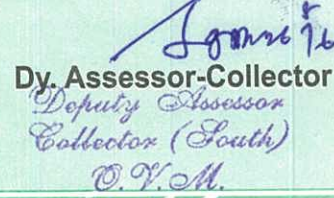 Dy. Assessor-Collector
Deputy Assessor
Collector (South)
O.V.M.